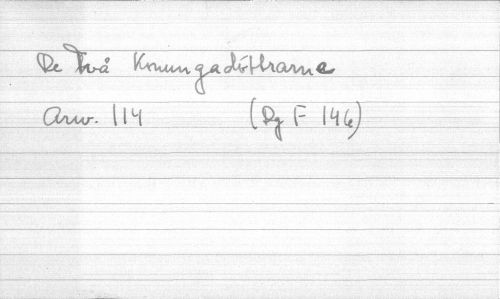 De två Konungadöttrarna
Arw. 114 (Dg F 146)